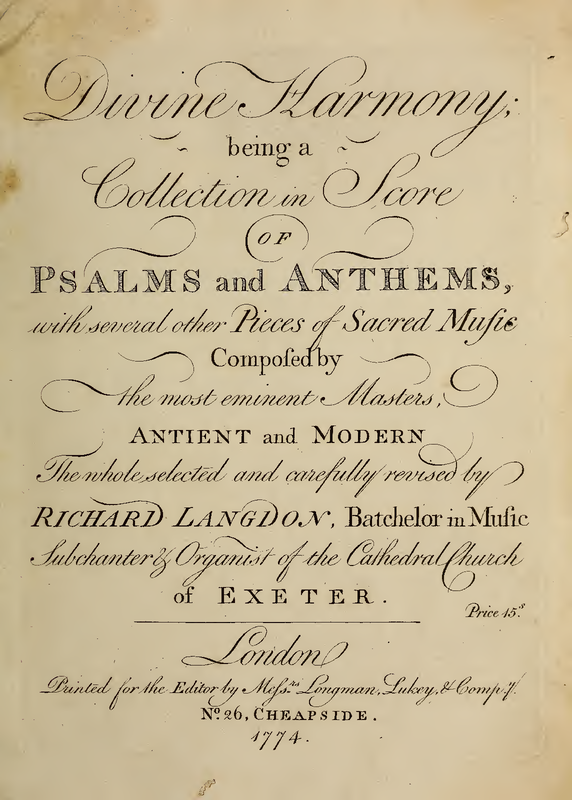 Divine Harmony;
being a
Collection in Score
OF
PSALMS and ANTHEMS,
with several other Pieces of Sacred Muſic
Compoſed by
the most eminent Masters,
ANTIENT and MODERN
The whole selected and carefully revised by
RICHARD LANGDON, Batchelor in Muſic
Subchanter & Organist of the Cathedral Church
of EXETER.
Price 15.s
London
Printed for the Editor by Meſs.rs Longman, Lukey, & Comp.y.
No. 26, CHEAPSIDE.
1774.